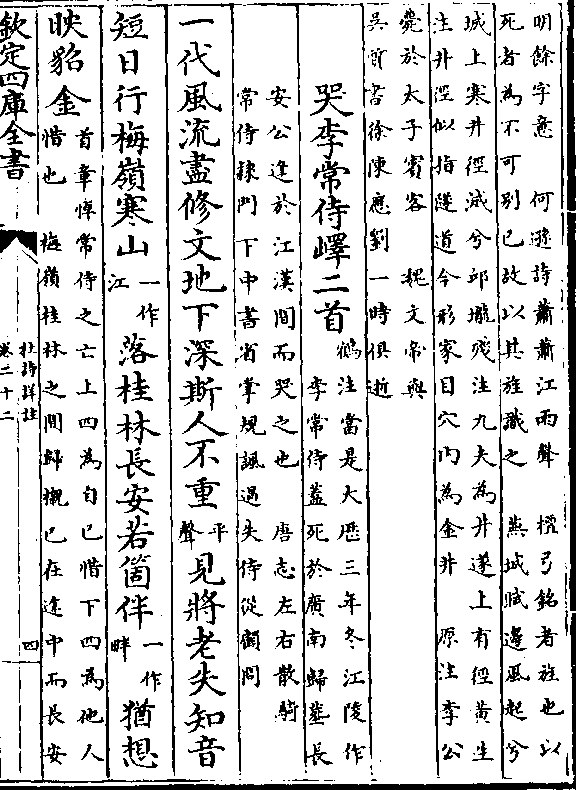 明餘字意　何遜詩蕭蕭江雨聲　檀弓銘者旌也以
死者為不可别已故以其旌識之　蕪城賦邊風起兮
城上寒井徑滅兮邱壠殘注九夫為井遂上有徑黄生
注井徑似指隧道今形家目穴内為金井　原注李公
薨於太子賓客　魏文帝與
吳質書徐陳應劉一時俱逝
哭李常侍嶧二首
鶴注當是大厯三年冬江陵作
李常侍葢死於廣南歸葬長
安公逢於江漢間而哭之也　唐志左右散騎
常侍隸門下中書省掌規諷過失侍從顧問
一代風流盡修文地下深斯人不重平聲見將老失知音
短日行梅嶺寒山一作江落桂林長安若箇伴一作畔猶想
映貂金
首章悼常侍之亡上四為自已惜下四為他人
惜也　梅嶺桂林之間歸櫬已在途中而長安
欽定四庫全書
杜詩詳註
卷二十二
四